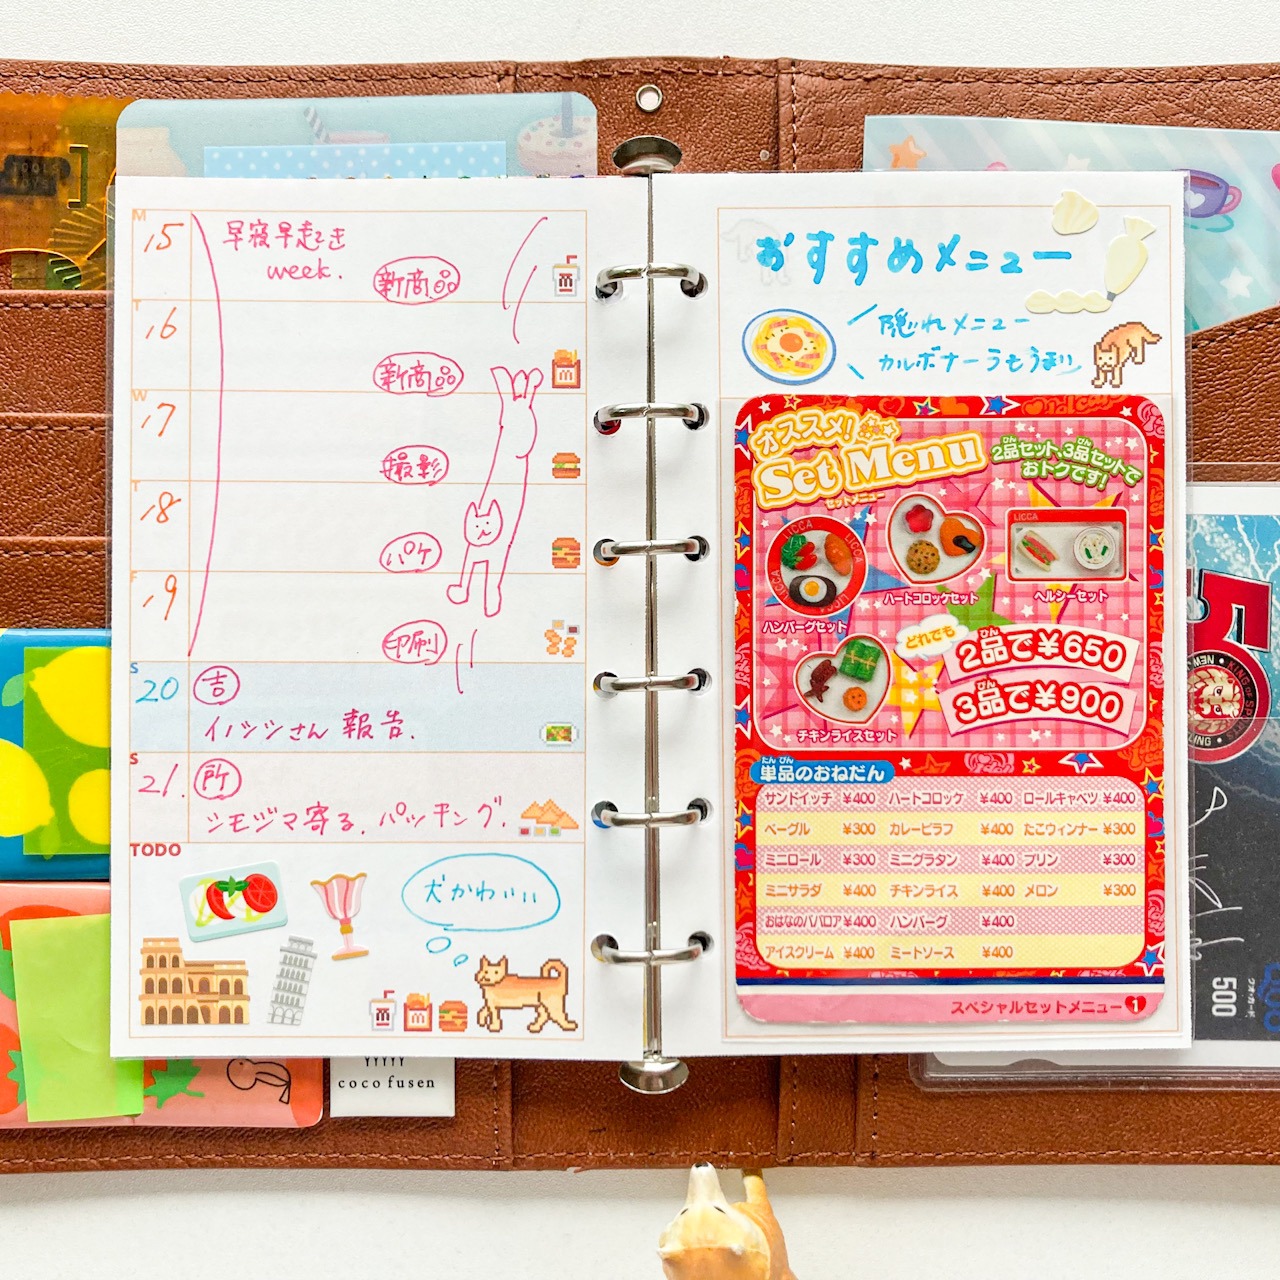 M
15
早寝早起き
week.
新商品
T
16
新商品
W
17
撮影
T
18
パケ
F
19
印刷
S
20
吉
イハシさん 報告.
S
21.
所
シモジマ寄る. パッキング.
TODO
犬かわいい
coco fusen
おすすめメニュー
隠れメニュー
カルボナーラもうまい
オススメ!
Set Menu
セットメニュー
2品セット、3品セットで
おトクです!
LICCA
LICCA
ハンバーグセット
ハートコロッケセット
ヘルシーセット
チキンライスセット
どれでも
2品で¥650
3品で¥900
単品のおねだん
サンドイッチ ¥400 ハートコロッケ ¥400 ロールキャベツ ¥400
ベーグル ¥300 カレーピラフ ¥400 たこウィンナー ¥300
ミニロール ¥300 ミニグラタン ¥400 プリン ¥300
ミニサラダ ¥400 チキンライス ¥400 メロン ¥300
おはなのババロア ¥400 ハンバーグ ¥400
アイスクリーム ¥400 ミートソース ¥400
スペシャルセットメニュー 1
KING OF SPORTS
NEW
500
クオ・カード